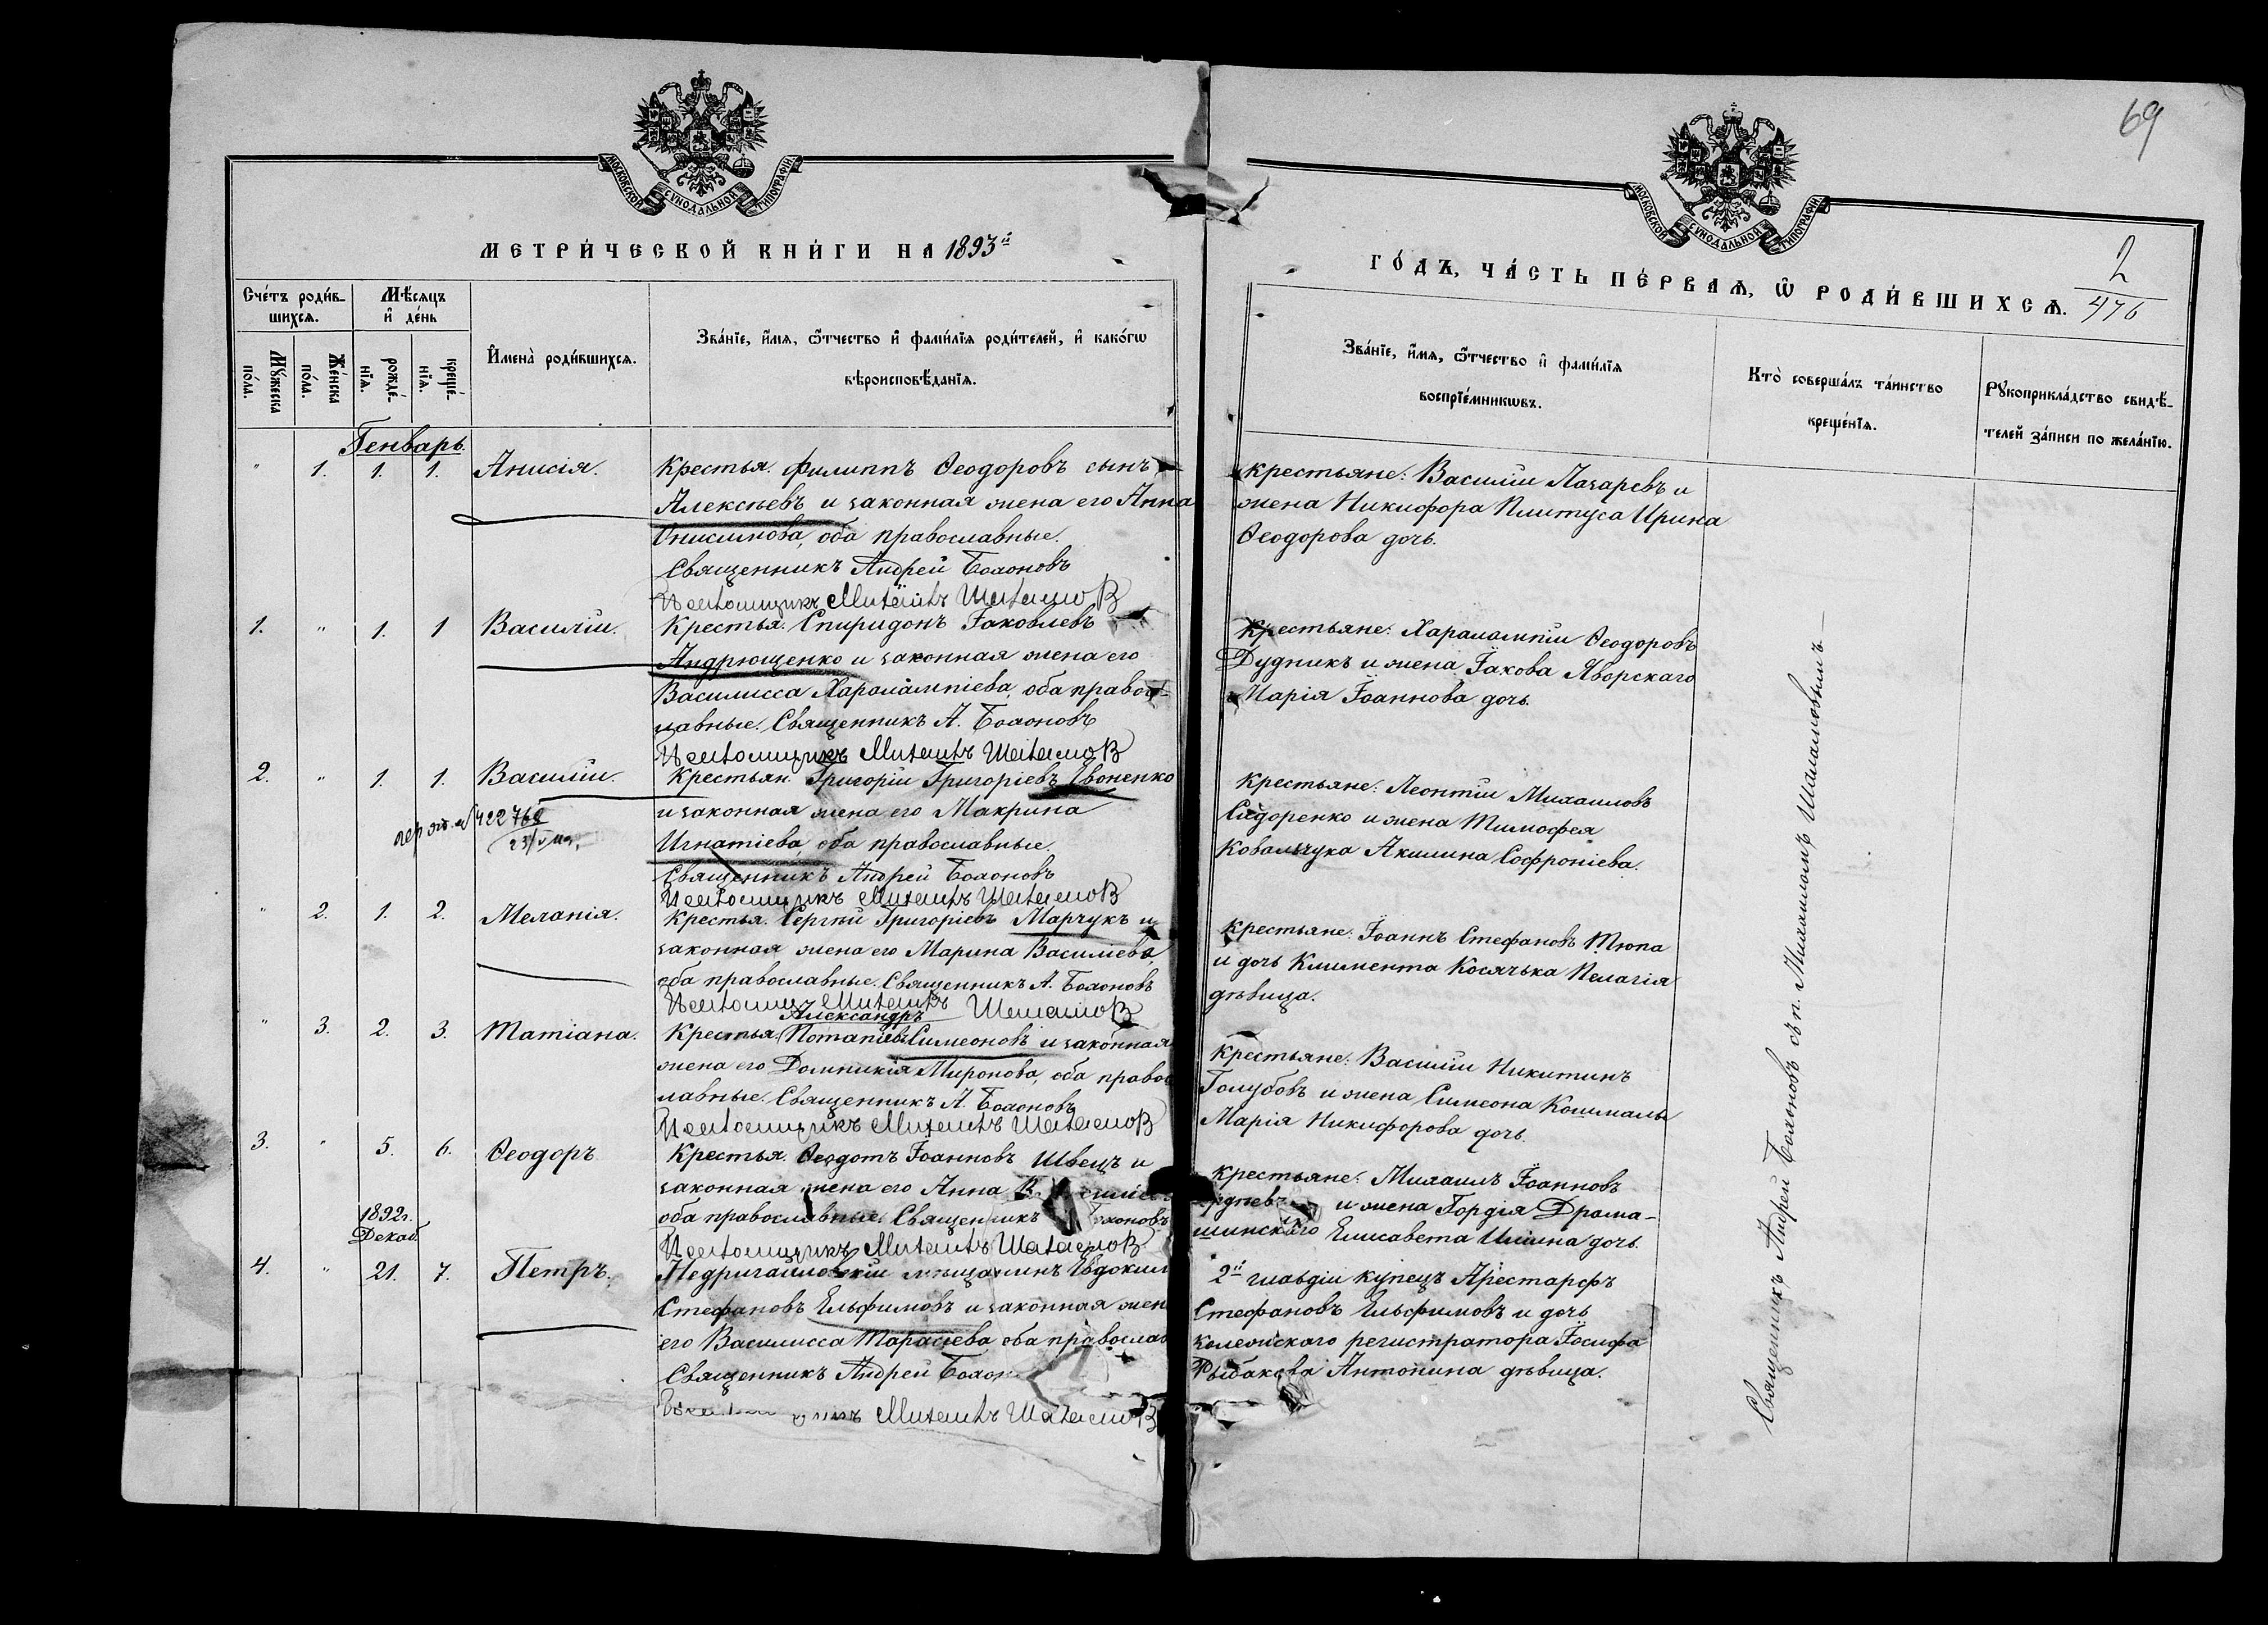 69
МОСКОВСКОЙ СѴНОДАЛЬНОЙ ТИПОГРАФІИ
МОСКОВСКОЙ СѴНОДАЛЬНОЙ ТИПОГРАФІИ
МЕТРИ́ЧЕСКОЙ КНИ́ГИ НА 1893й
ГО́ДЪ, ЧА́СТЬ ПЕ́РВАѦ, Ѡ РОДИ́ВШИХСѦ.
2
476
Сче́тъ роди́в-
шихсѧ.
Мꙋ́жеска
по́ла.
Же́нска
по́ла.
Мѣ́сѧцъ
и҆ де́нь
рожде́-
нїѧ.
креще́-
нїѧ.
И҆мена̀ роди́вшихсѧ.
Зва́нїе, и҆́мѧ, ѻ҆́тчество и҆ фамі́лїѧ роди́телей, и҆ како́гѡ
вѣроисповѣ́данїѧ.
Зва́нїе, и҆́мѧ, ѻ҆́тчество и҆ фамі́лїѧ
воспрїе́мникѡвъ.
Кто̀ соверша́лъ та́инство
креще́нїѧ.
Рꙋкоприкла́дство свидѣ́-
телей за́писи по жела́нїю.
Генварь.
" 1. 1. 1. Анисія.
Крестья. Филиппъ Ѳеодоровъ сынъ
Алексѣевъ и законная жена его Анна
Онисимова, оба православные.
Священникъ Андрей Болоновъ
Псаломщикъ Михаилъ Шаламов
Крестьяне: Василій Лазаревъ и
жена Никифора Плитуса Ирина
Ѳеодорова дочь.
1. " 1. 1 Василій.
Крестья. Спиридонъ Іаковлевъ
Андрющенко и законная жена его
Василисса Харалампіева, оба правос-
лавные. Священникъ А. Болоновъ
Псаломщикъ Михаилъ Шаламов
Крестьяне: Харалампій Ѳеодоровъ
Дудникъ и жена Іакова Яворскаго
Марія Іоаннова дочь.
2. " 1. 1. Василій.
422768
Крестьян. Григорій Григоріевъ Евоненко
и законная жена его Макрина
Игнатіева, оба православные.
Священникъ Андрей Болоновъ
Псаломщикъ Михаилъ Шаламов
Крестьяне: Леонтій Михаиловъ
Сидоренко и жена Тимофея
Ковальчука Акилина Софроніева.
" 2. 1. 2. Меланія.
Крестья. Сергѣй Григоріевъ Марчукъ и
законная жена его Марина Василіева,
оба православные. Священникъ А. Болоновъ
Псаломщ. Михаилъ Шаламов
Крестьяне: Іоаннъ Стефановъ Тюпа
и дочь Климента Косячька Пелагія
дѣвица.
" 3. 2. 3. Татіана.
Александръ
Крестья. Потапіевъ Симеоновъ и законная
жена его Домникія Миронова, оба правос
лавные. Священникъ А. Болоновъ
Псаломщикъ Михаилъ Шаламов
Крестьяне: Василій Никитинъ
Голубовъ и жена Симеона Кошмалы
Марія Никифорова дочь.
3. " 5. 6. Ѳеодоръ
Крестья. Ѳеодотъ Іоанновъ Швецъ и
законная жена его Анна
оба православные. Священникъ Болоновъ
Псаломщикъ Михаилъ Шаламов
Крестьяне: Михаилъ Іоанновъ
и жена Гордія Драма-
шинскаго Елисавета Ильина дочь.
1892г.
Декаб.
4. " 21. 7. Петръ.
Недригайловскій мѣщанинъ Евдоким
Стефановъ Ельфимовъ и законная жен
его Василисса Тарасіева оба православ
Священникъ Андрей Болон
Михаилъ Шаламов
2й гильдіи купецъ Арестархъ
Стефановъ Ельфимовъ и дочь
колежскаго регистратора Іосифа
Рыбакова Антонина дѣвица.
Священникъ Андрей Болоновъ съ п. Михаиломъ Шаламовымъ